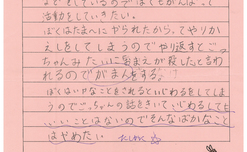 などをしているのでぼくもがんばって
活動をしていきたい。
ぼくはたまへにやられたから、てやりか
えしをしてしまうのでやり返すとごっ
ちゃんみたいにお前が殺したと言わ
れるのでがまんをする。
ぼくはいやなことをされるといじわるをしてしま
うのでごっちゃんの話をきいていじわるしても
いいことはないのでそんなばかなこと
はやめたい